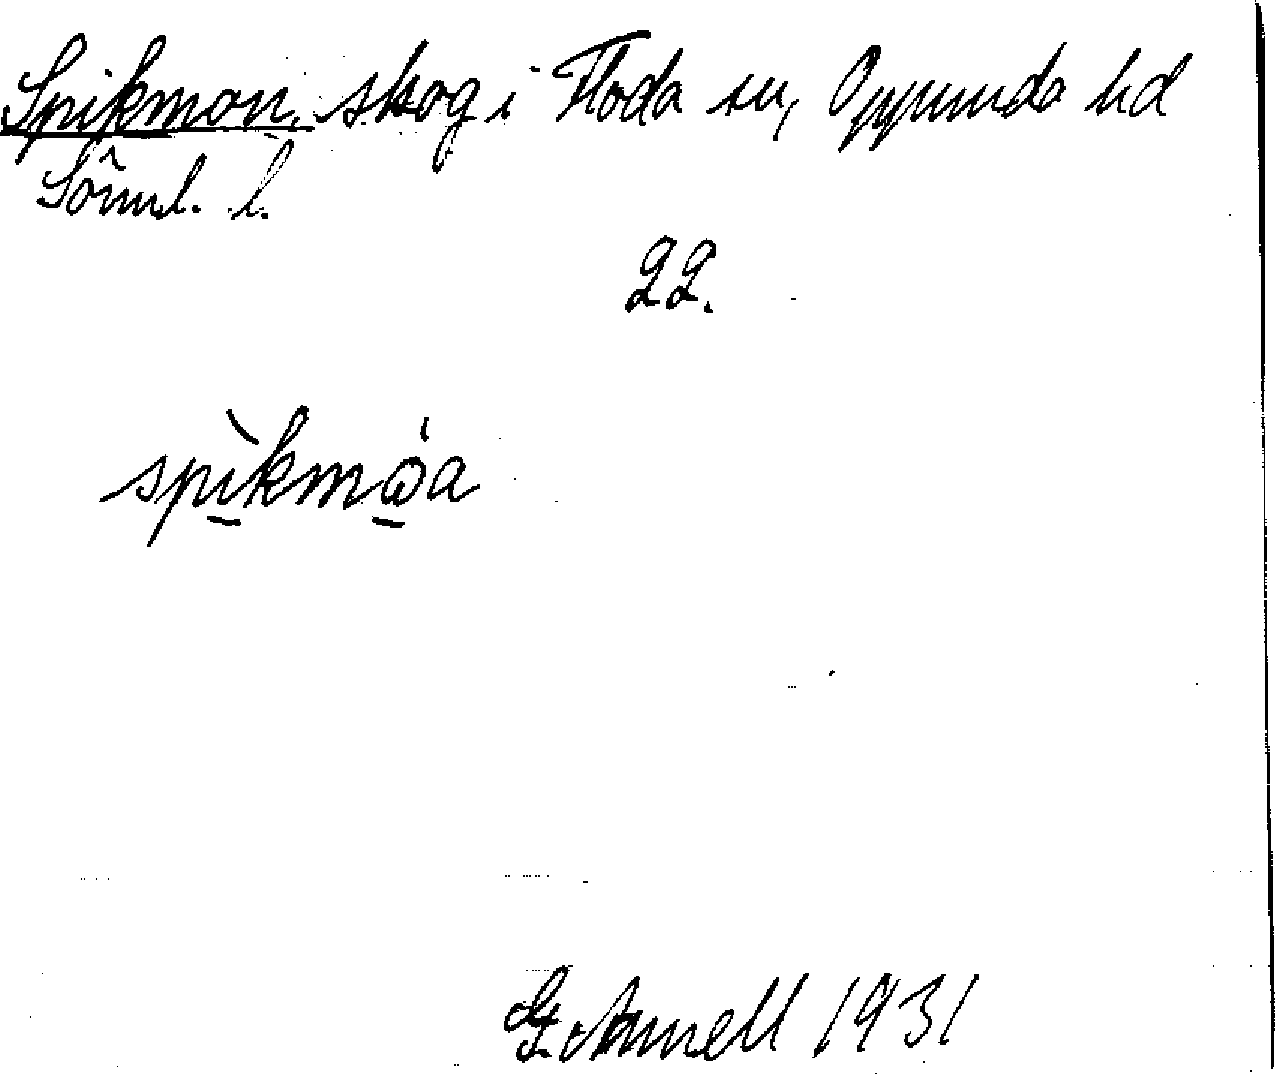 Spikmon, skog i Floda sn, Oppunda hd
Söml. l.
22.
spìkmω̇a
G. Arnell 1931